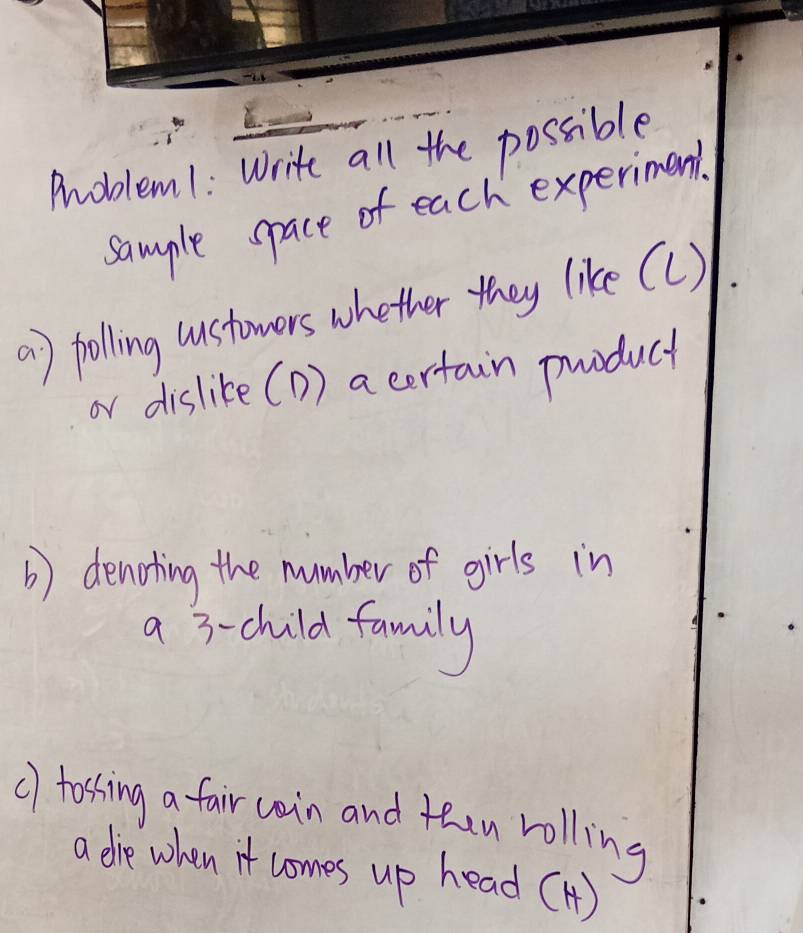 Problem 1: Write all the possible
sample space of each experiment.
a.) polling customers whether they like (L)
or dislike (D) a certain product
b) denoting the number of girls in
a 3-child family
c) tossing a fair coin and then rolling
a die when it comes up head (H)